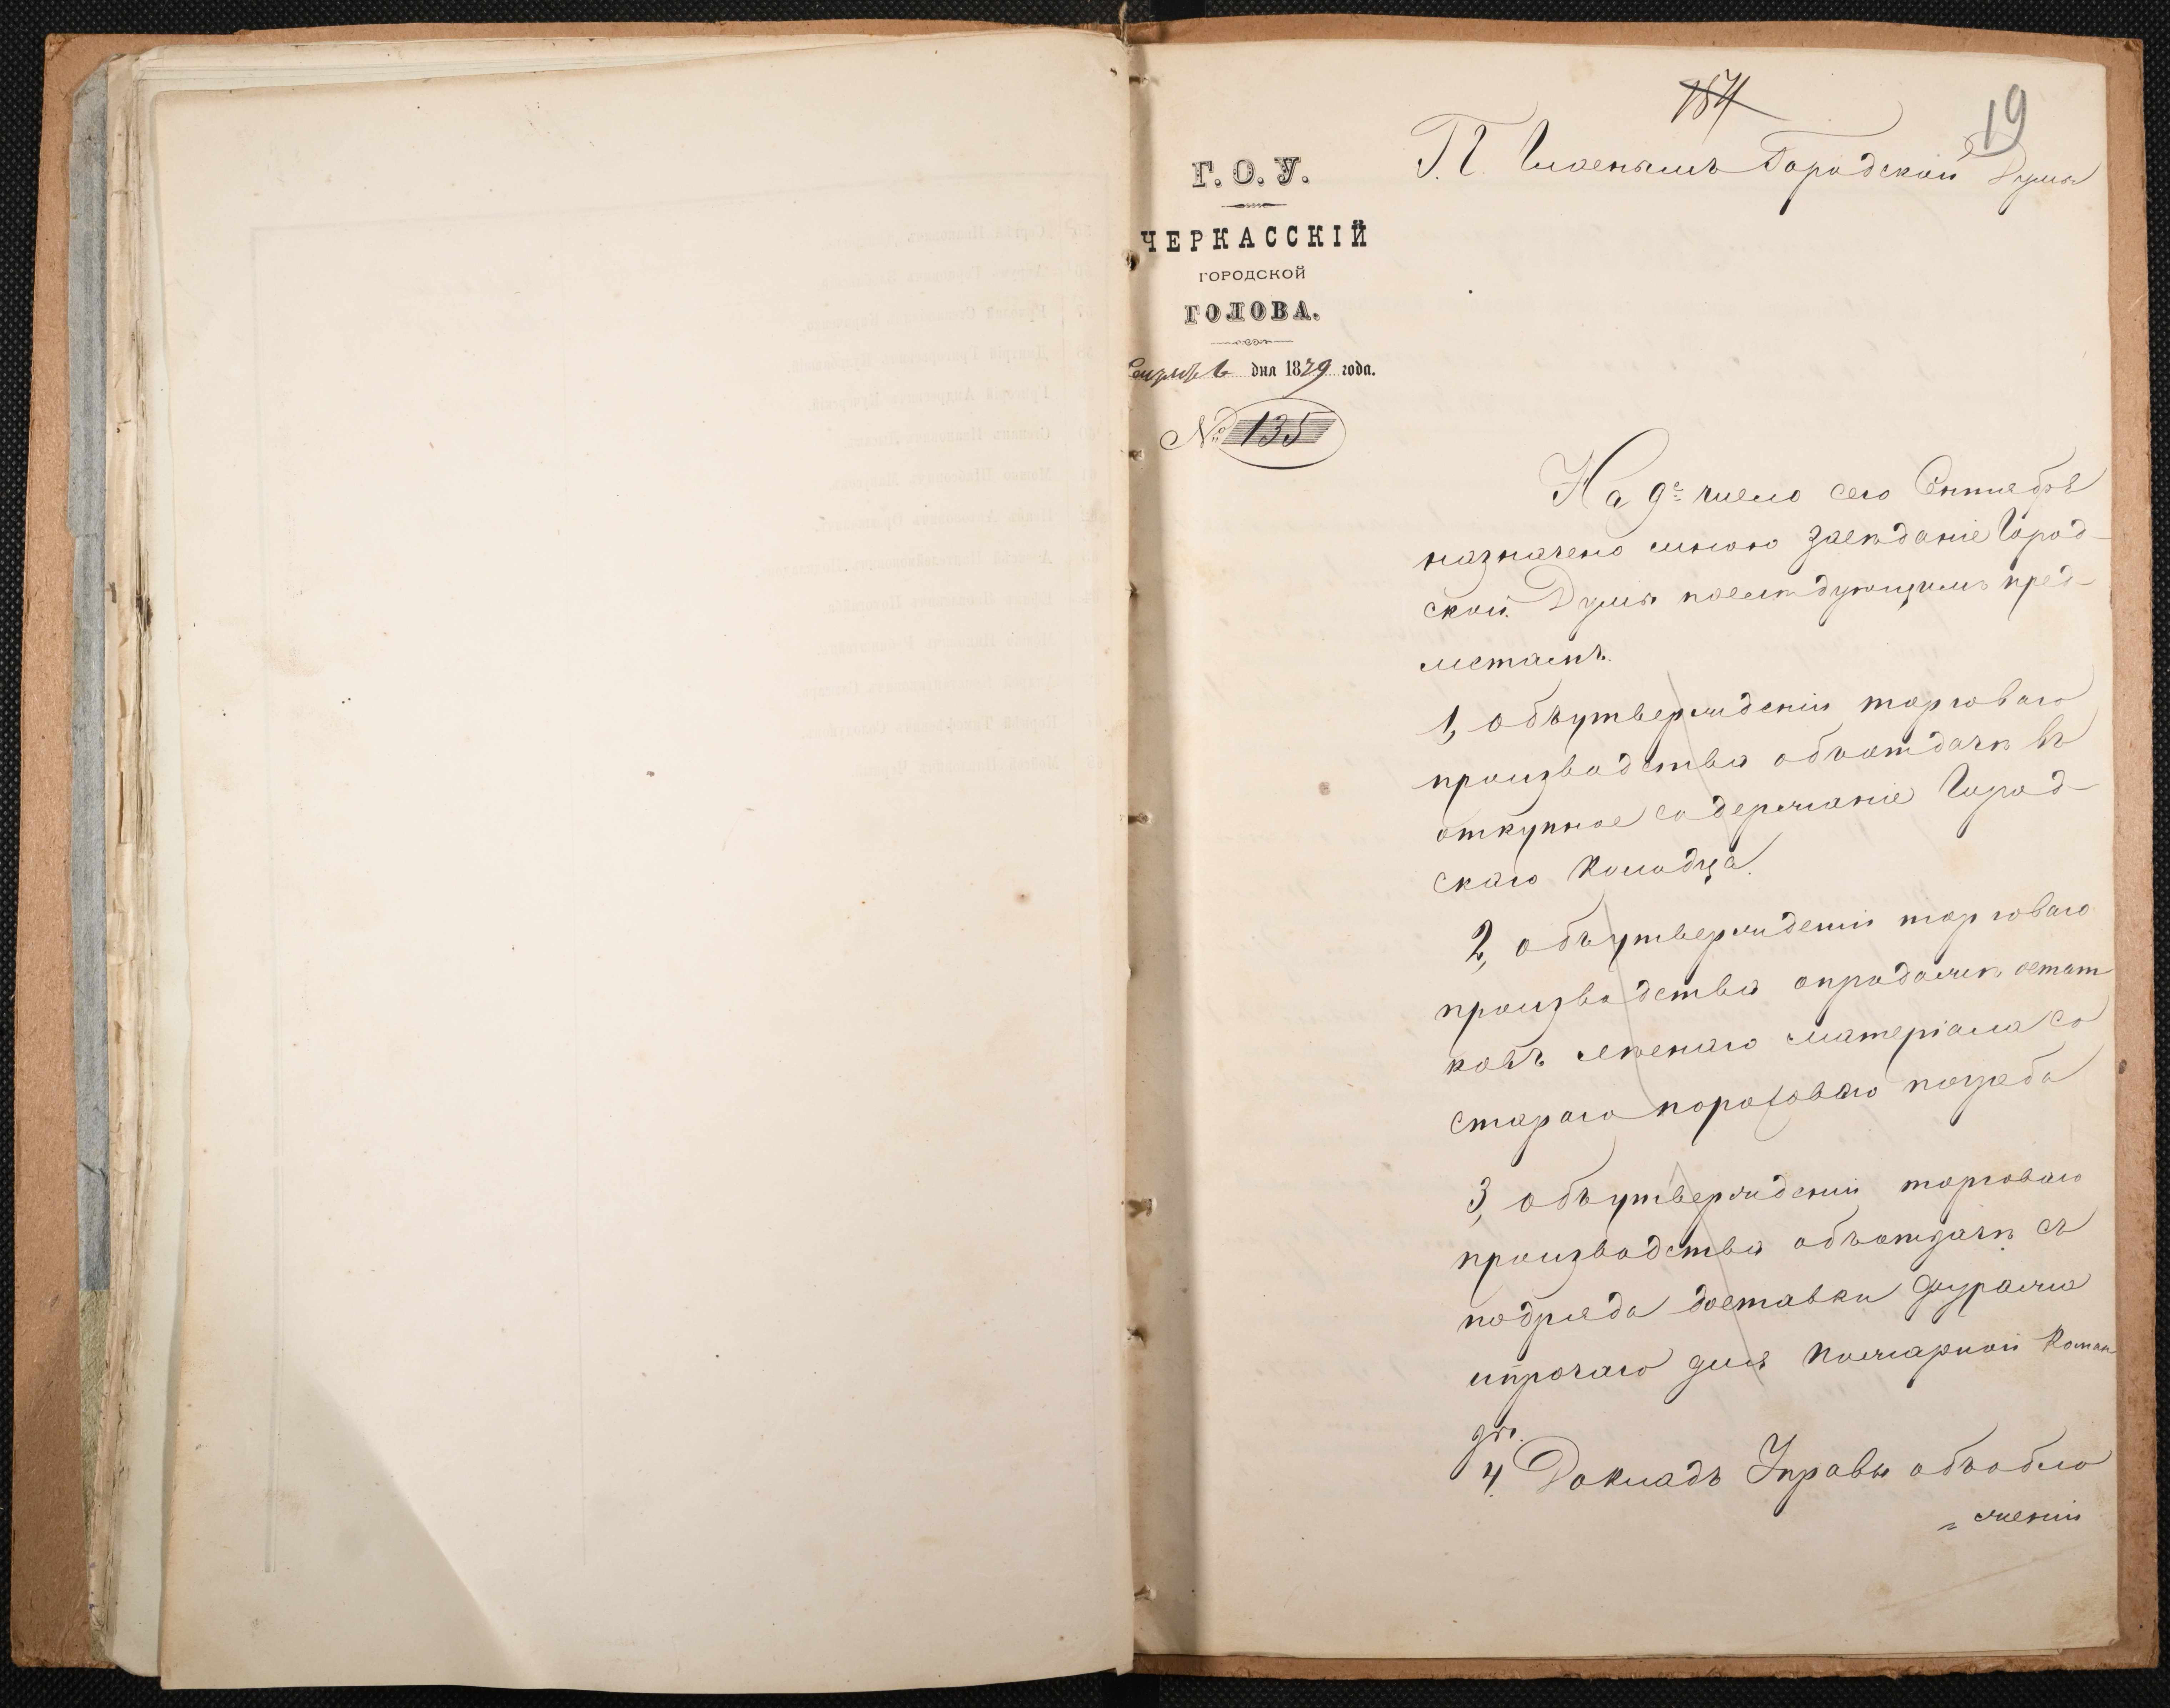 184
19
Г. О. У.
ЧЕРКАССКІЙ
ГОРОДСКОЙ
ГОЛОВА.
дня 1879 года.
№ 135
Г. Г. Гласнымъ Городской Думы
На 9е число сего Сентября
назначено мною засѣданіе Город-
ской Думы послѣдующимъ пред-
метамъ.
1, объутвержденіи торговаго
производства объотдачѣ въ
откупное содержаніе Город-
скаго Колодца.
2, объутвержденіи торговаго
производства опродажѣ остат
ковъ лѣснаго матеріала со
стараго пороховаго погреба
3, объутвержденіи торговаго
производства объотдачѣ съ
подряда доставки фуража
ипрочаго для пожарной Коман
ды.
4. Докладъ Управы объобло
= женіи